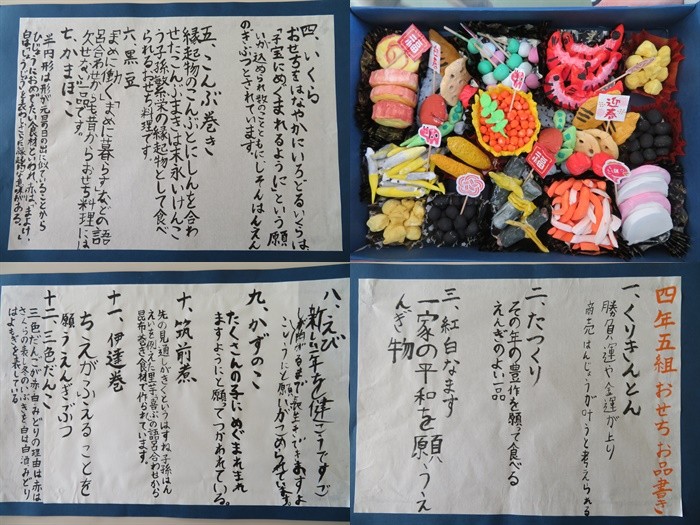 四年五組 おせちお品書き
一、くりきんとん
勝負運や金運が上り
商売はんじょうが叶うと考えられる
二、たつくり
その年の豊作を願って食べる
えんぎのよい一品
三、紅白なます
一家の平和を願うえ
んぎ物
四、いくら
おせちをはなやかにいろどるいくらは
「子宝にめぐまれるように」という願
いが込められ数のこととともにしそんはんえん
のぎぶつとされています。
五、こんぶ巻き
縁起物のこんぶとにしんを合わ
せたこんぶまきは末永いけんこ
う子孫繁栄の縁起物として食べ
られるおせち料理です。
六、黒豆
「まめに働く」「まめに暮らす」などの語
呂合わせから、昔からおせち料理には
欠せない一品です。
七、かまぼこ
半円形は形が元旦の日の出に似ていることから
ひじょうにおめでたい食材といわれ、赤は、まよけ、
八、えび
九、かずのこ
たくさんの子にめぐまれま
すようにと願ってつかわれている。
十、筑前煮
先の見通しがきくというはすね、子孫はん
えいを例えた里芋、喜ぶの語呂合わせから
昆布巻き食材で作られています。
十一、伊達巻
ちえがふえることを
願うえんぎぶつ
十二、三色だんこ
三色だんごが赤白みどりの理由は赤は
さくらの表し冬のふぶきを白は白酒みどり
はよもぎを表している。
迎春
福